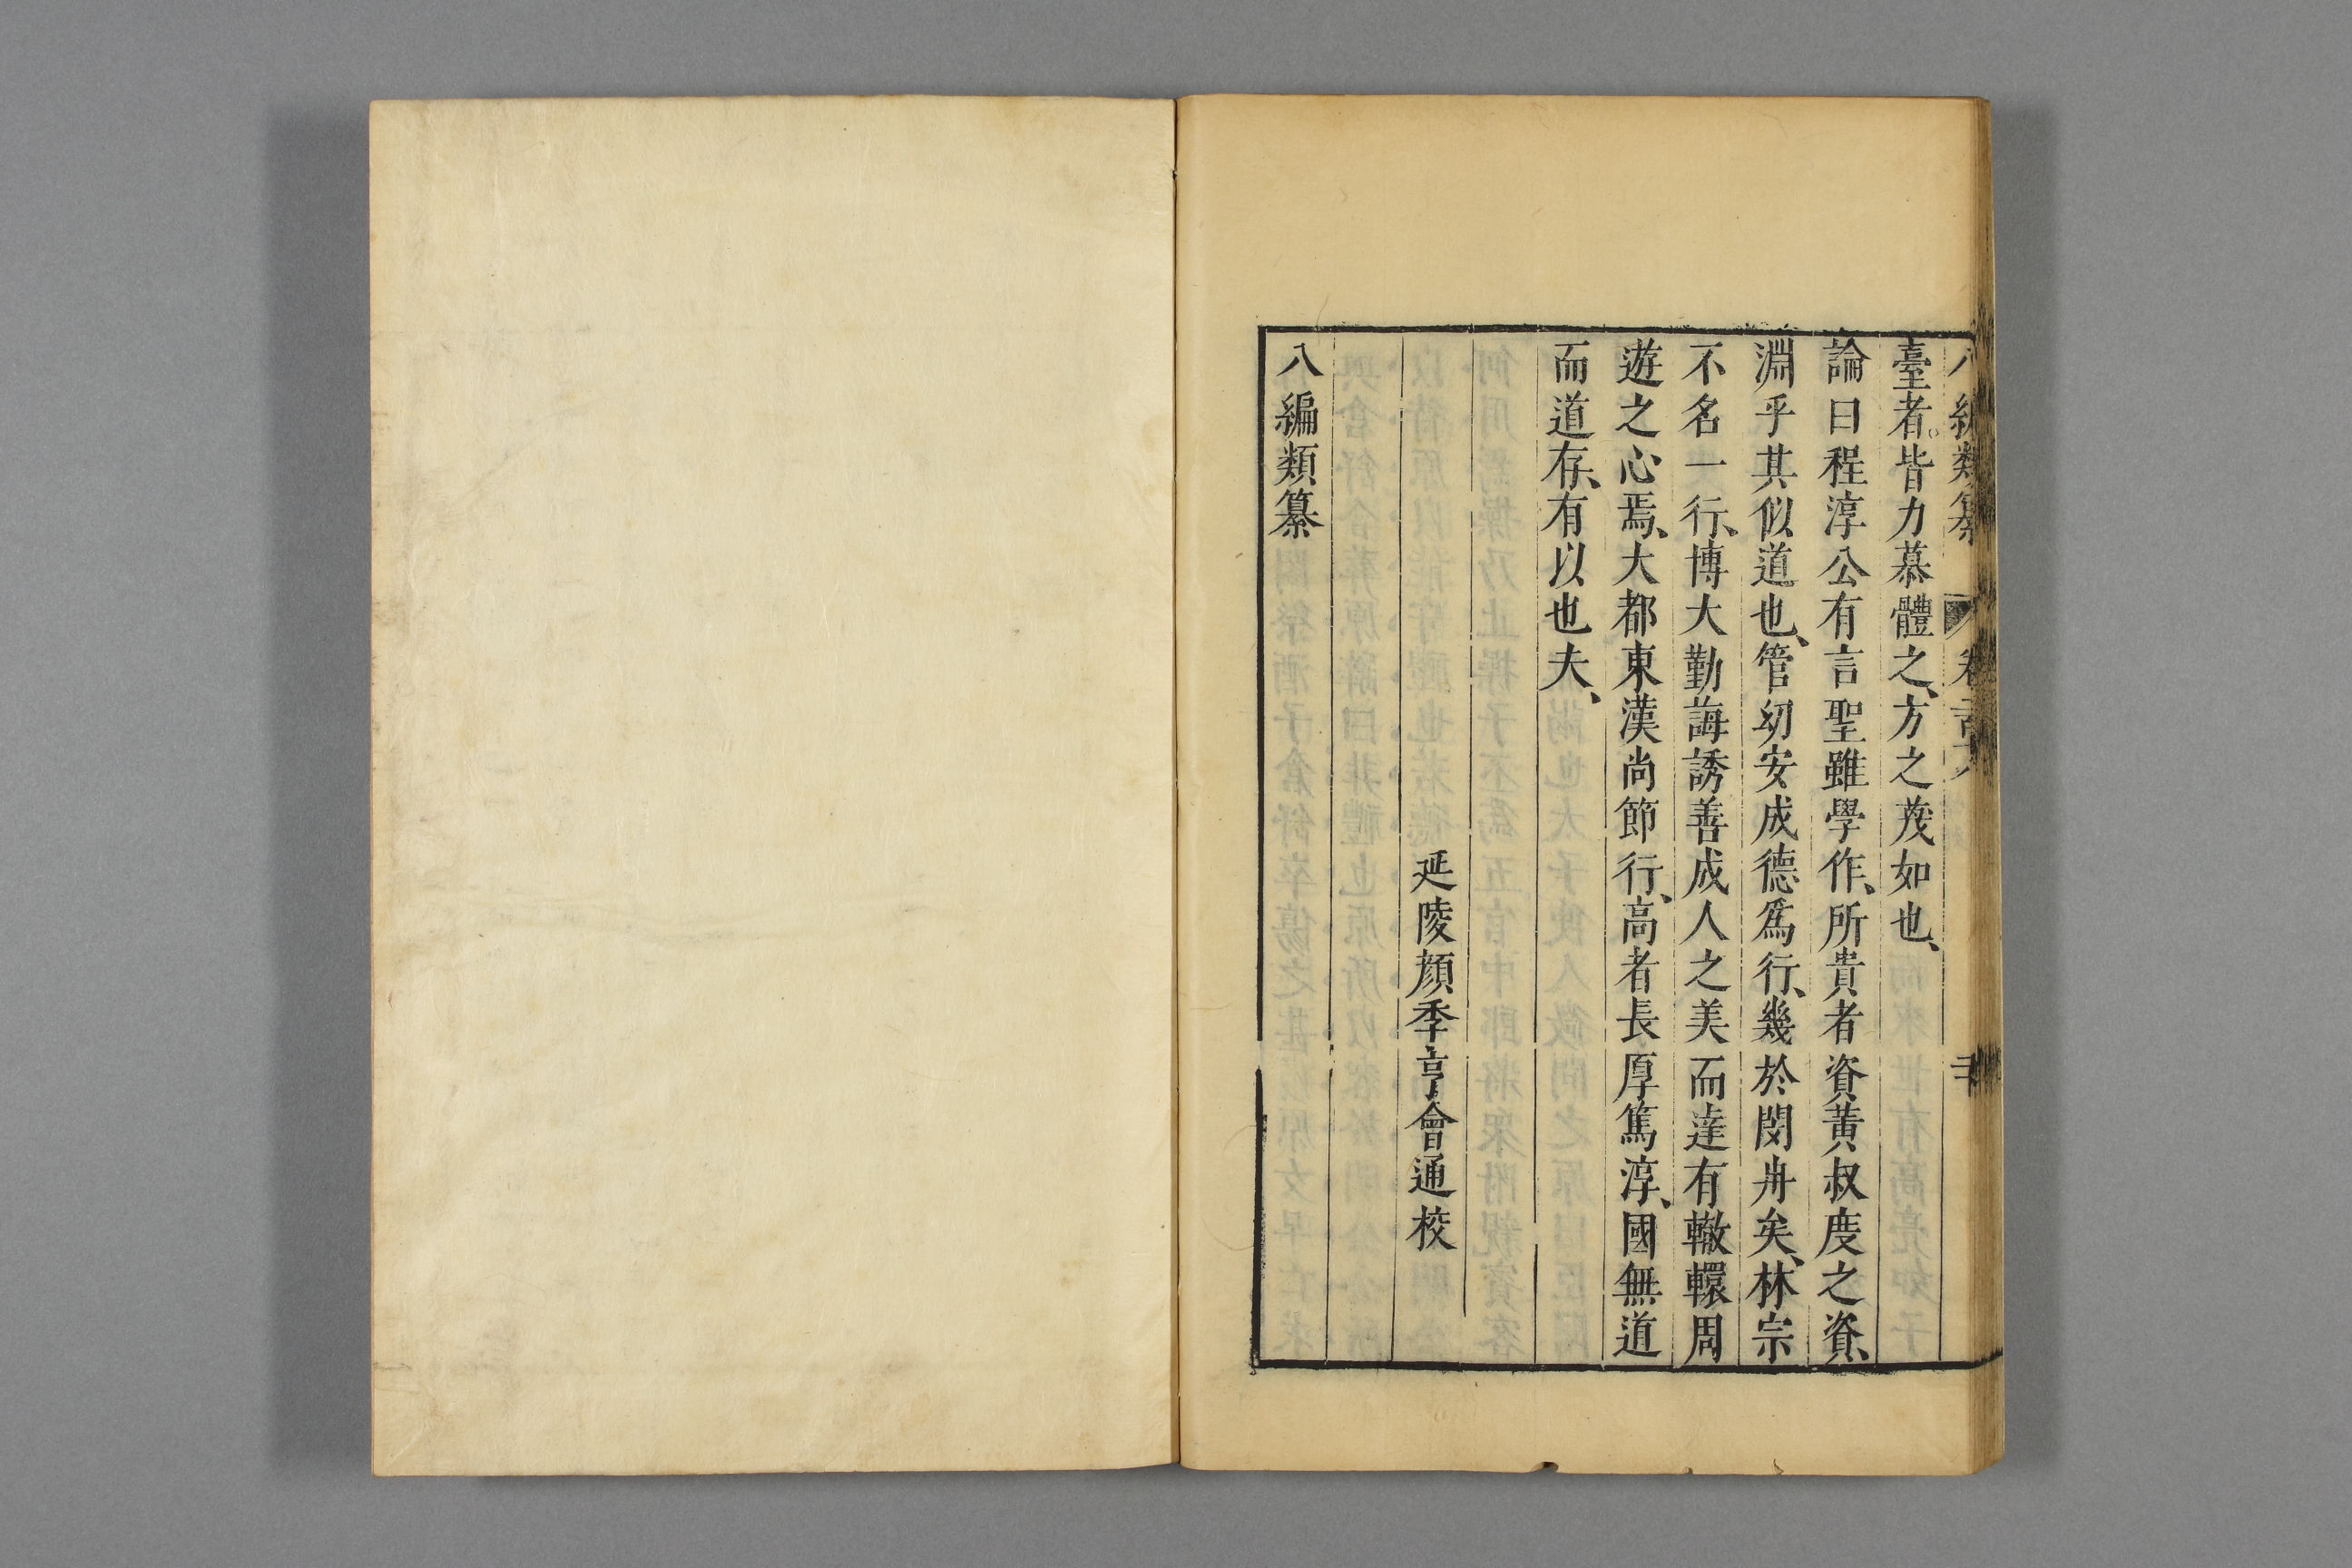 八編類纂 卷
臺者。皆力慕體之、方之蔑如也、
論曰程淳公有言聖雖學作、所貴者資黃叔度之資、
淵乎其似道也、管幼安成德爲行、幾於閔冉矣、林宗
不名一行、博大勤誨誘善成人之美而達有轍轘周
遊之心焉、大都東漢尚節行、高者長厚篤淳、國無道
而道存、有以也夫、
延陵顏季亨會通校
八編類纂